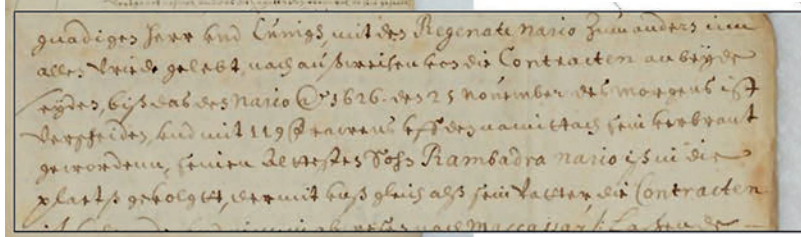 gnadigen Herr vnd Cunigs mit den Regenate nario Zumanders inn
allen Vriede gelebt, nach außweisen von die Contracten an beyde
seyden, biß das der nario Ao 1626. den 25 november des morgens ist
Verscheiden, vnd mit 119 frawens vff den namittach sein verbrant
gewordenn, seinen Altesten Sohn Rambadra nario ist in die
plaetß gevolgtt, der mit vnß gleich alß sein Vatter die Contracten